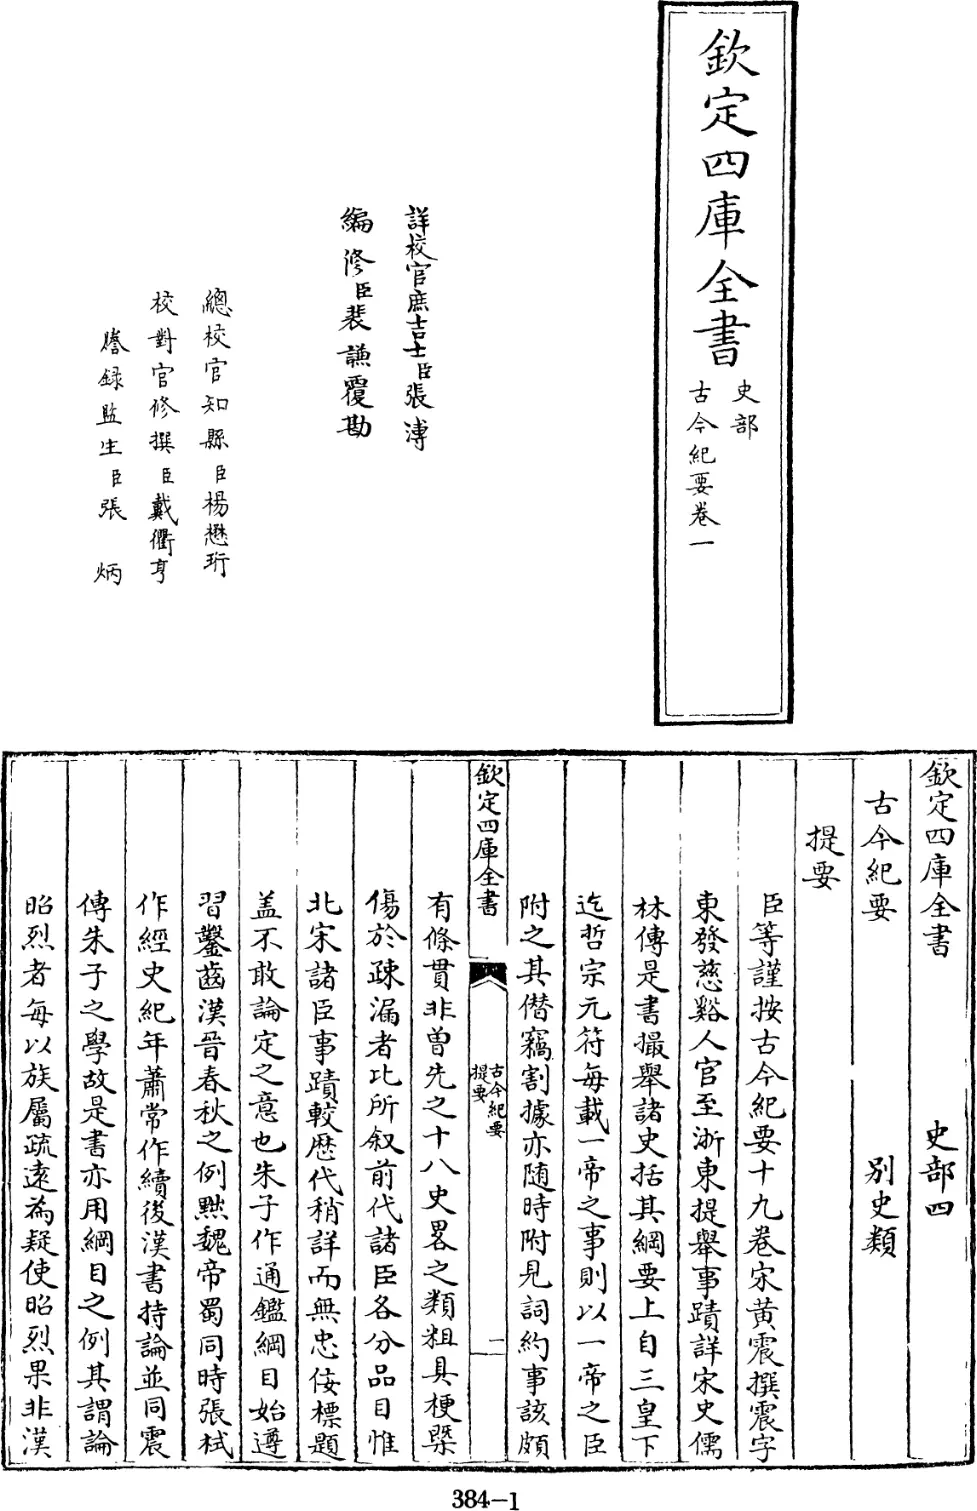 欽定四庫全書
史部
古今紀要卷一
詳校官庶吉士臣張溥
編修臣裴謙覆勘
總校官知縣臣楊懋珩
校對官修撰臣戴衢亨
謄録監生臣張炳
欽定四庫全書 史部四
古今紀要 别史類
提要
臣等謹按古今紀要十九卷宋黄震撰震字
東發慈谿人官至浙東提舉事蹟詳宋史儒
林傳是書撮舉諸史括其綱要上自三皇下
迄哲宗元符每載一帝之事則以一帝之臣
附之其僣竊割據亦随時附見詞約事該頗
欽定四庫全書
古今紀要
提要
一
有條貫非曽先之十八史畧之類粗具梗槩
傷於踈漏者比所叙前代諸臣各分品目惟
北宋諸臣事蹟較歴代稍詳而無忠佞標題
盖不敢論定之意也朱子作通鑑綱目始遵
習鑿齒漢晉春秋之例黜魏帝蜀同時張栻
作經史紀年蕭常作續後漢書持論並同震
傳朱子之學故是書亦用綱目之例其謂論
昭烈者每以族屬疏遠為疑使昭烈果非漢
384-1